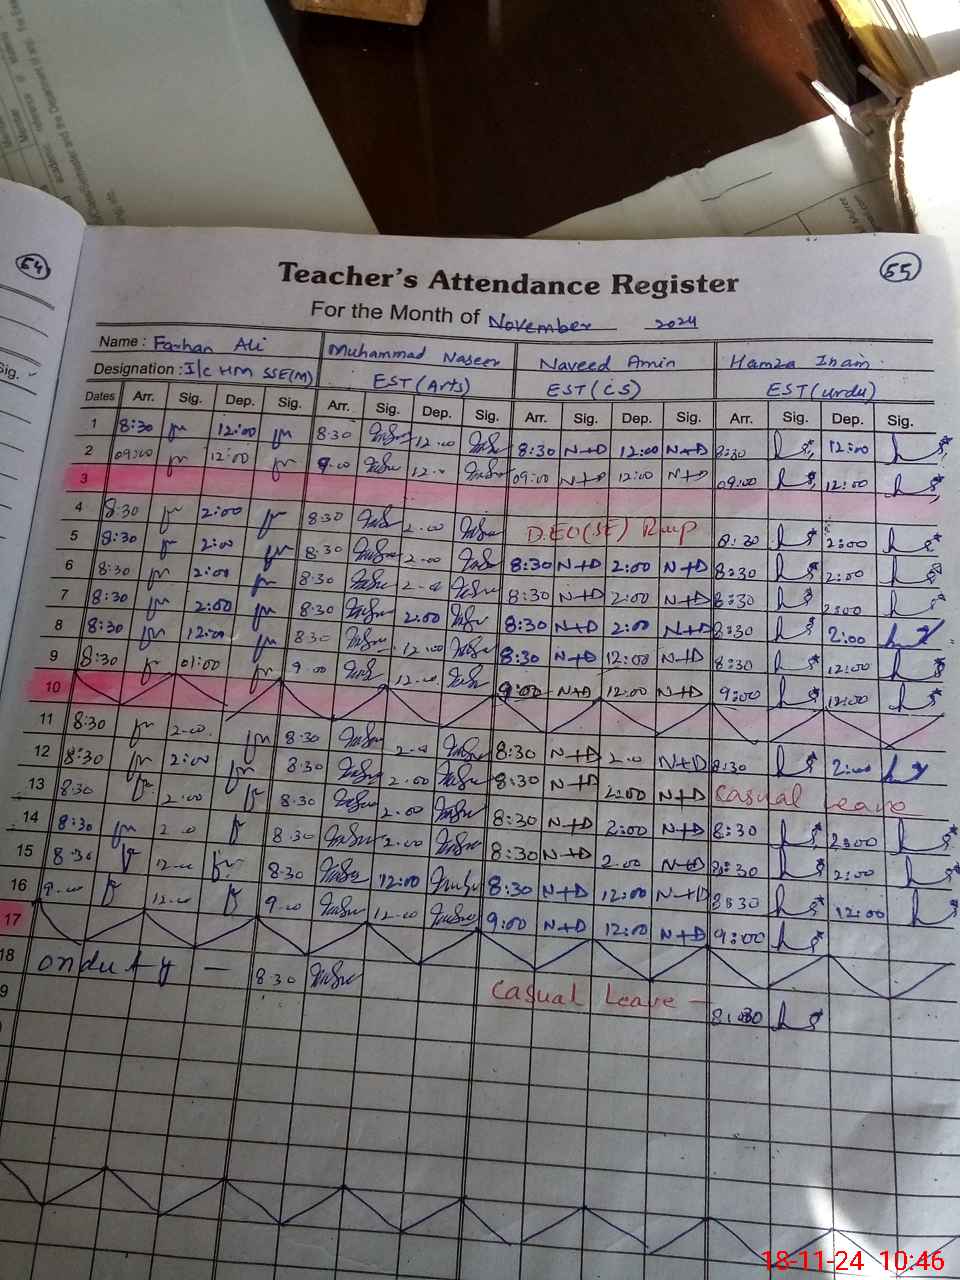 54
55
Teacher's Attendance Register
For the Month of November 2024
Sig.
Name : Farhan Ali Muhammad Naseer Naveed Amin Hamza Inam
Designation : I/c HM SSE(M) EST (Arts) EST (CS) EST (urdu)
Dates Arr. Sig. Dep. Sig. Arr. Sig. Dep. Sig. Arr. Sig. Dep. Sig. Arr. Sig. Dep. Sig.
1 8:30 12:00 8:30 12:00 8:30 N+D 12:00 N+D 8:30 12:00
2 09:00 12:00 9:00 12:00 09:00 N+D 12:00 N+D 09:00 12:00
3
4 8:30 2:00 8:30 2:00 D.EO(SE) 8:30 2:00
5 8:30 2:00 8:30 2:00 8:30 N+D 2:00 N+D 8:30 2:00
6 8:30 2:00 8:30 2:00 8:30 N+D 2:00 N+D 8:30 2:00
7 8:30 2:00 8:30 2:00 8:30 N+D 2:00 N+D 8:30 2:00
8 8:30 12:00 8:30 12:00 8:30 N+D 12:00 N+D 8:30 12:00
9 8:30 01:00 9:00 12:00 9:00 N+D 12:00 N+D 9:00 12:00
10
11 8:30 2:00 8:30 2:00 8:30 N+D 2:00 N+D 8:30 2:00
12 8:30 2:00 8:30 2:00 8:30 N+D 2:00 N+D Casual Leave
13 8:30 2:00 8:30 2:00 8:30 N+D 2:00 N+D 8:30 2:00
14 8:30 2:00 8:30 2:00 8:30 N+D 2:00 N+D 8:30 2:00
15 8:30 12:00 8:30 12:00 8:30 N+D 12:00 N+D 8:30 12:00
16 9:00 12:00 9:00 12:00 9:00 N+D 12:00 N+D 9:00
17
18 on duty — 8:30 Casual Leave — 8:30
9
18-11-24 10:46